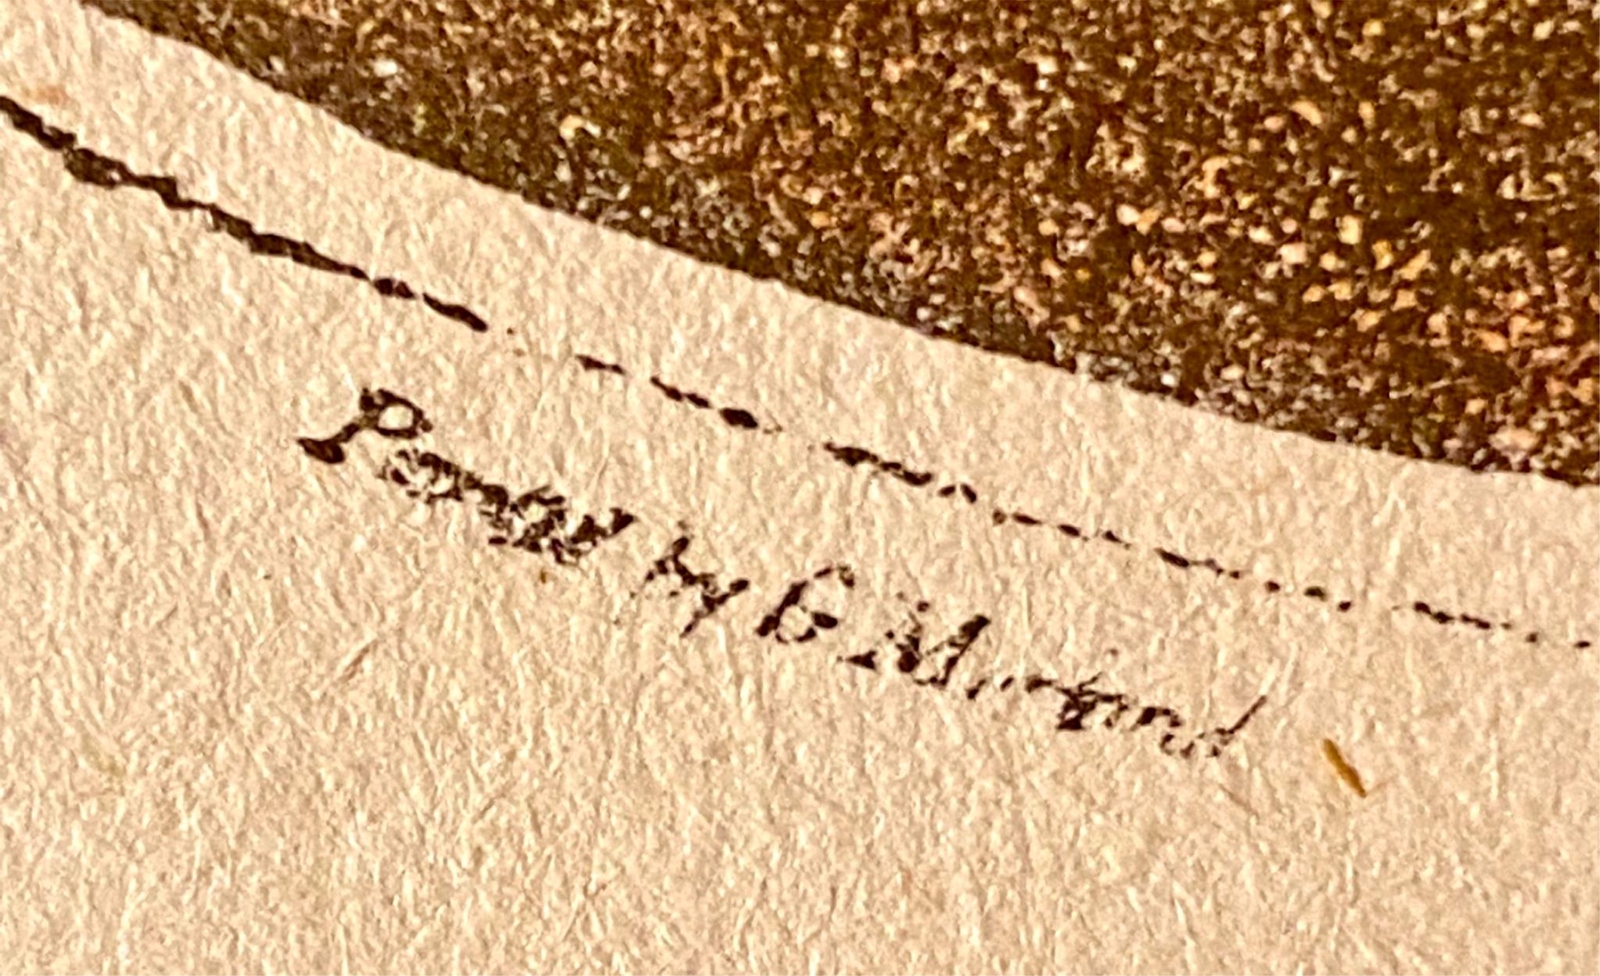 Painted by G Morland